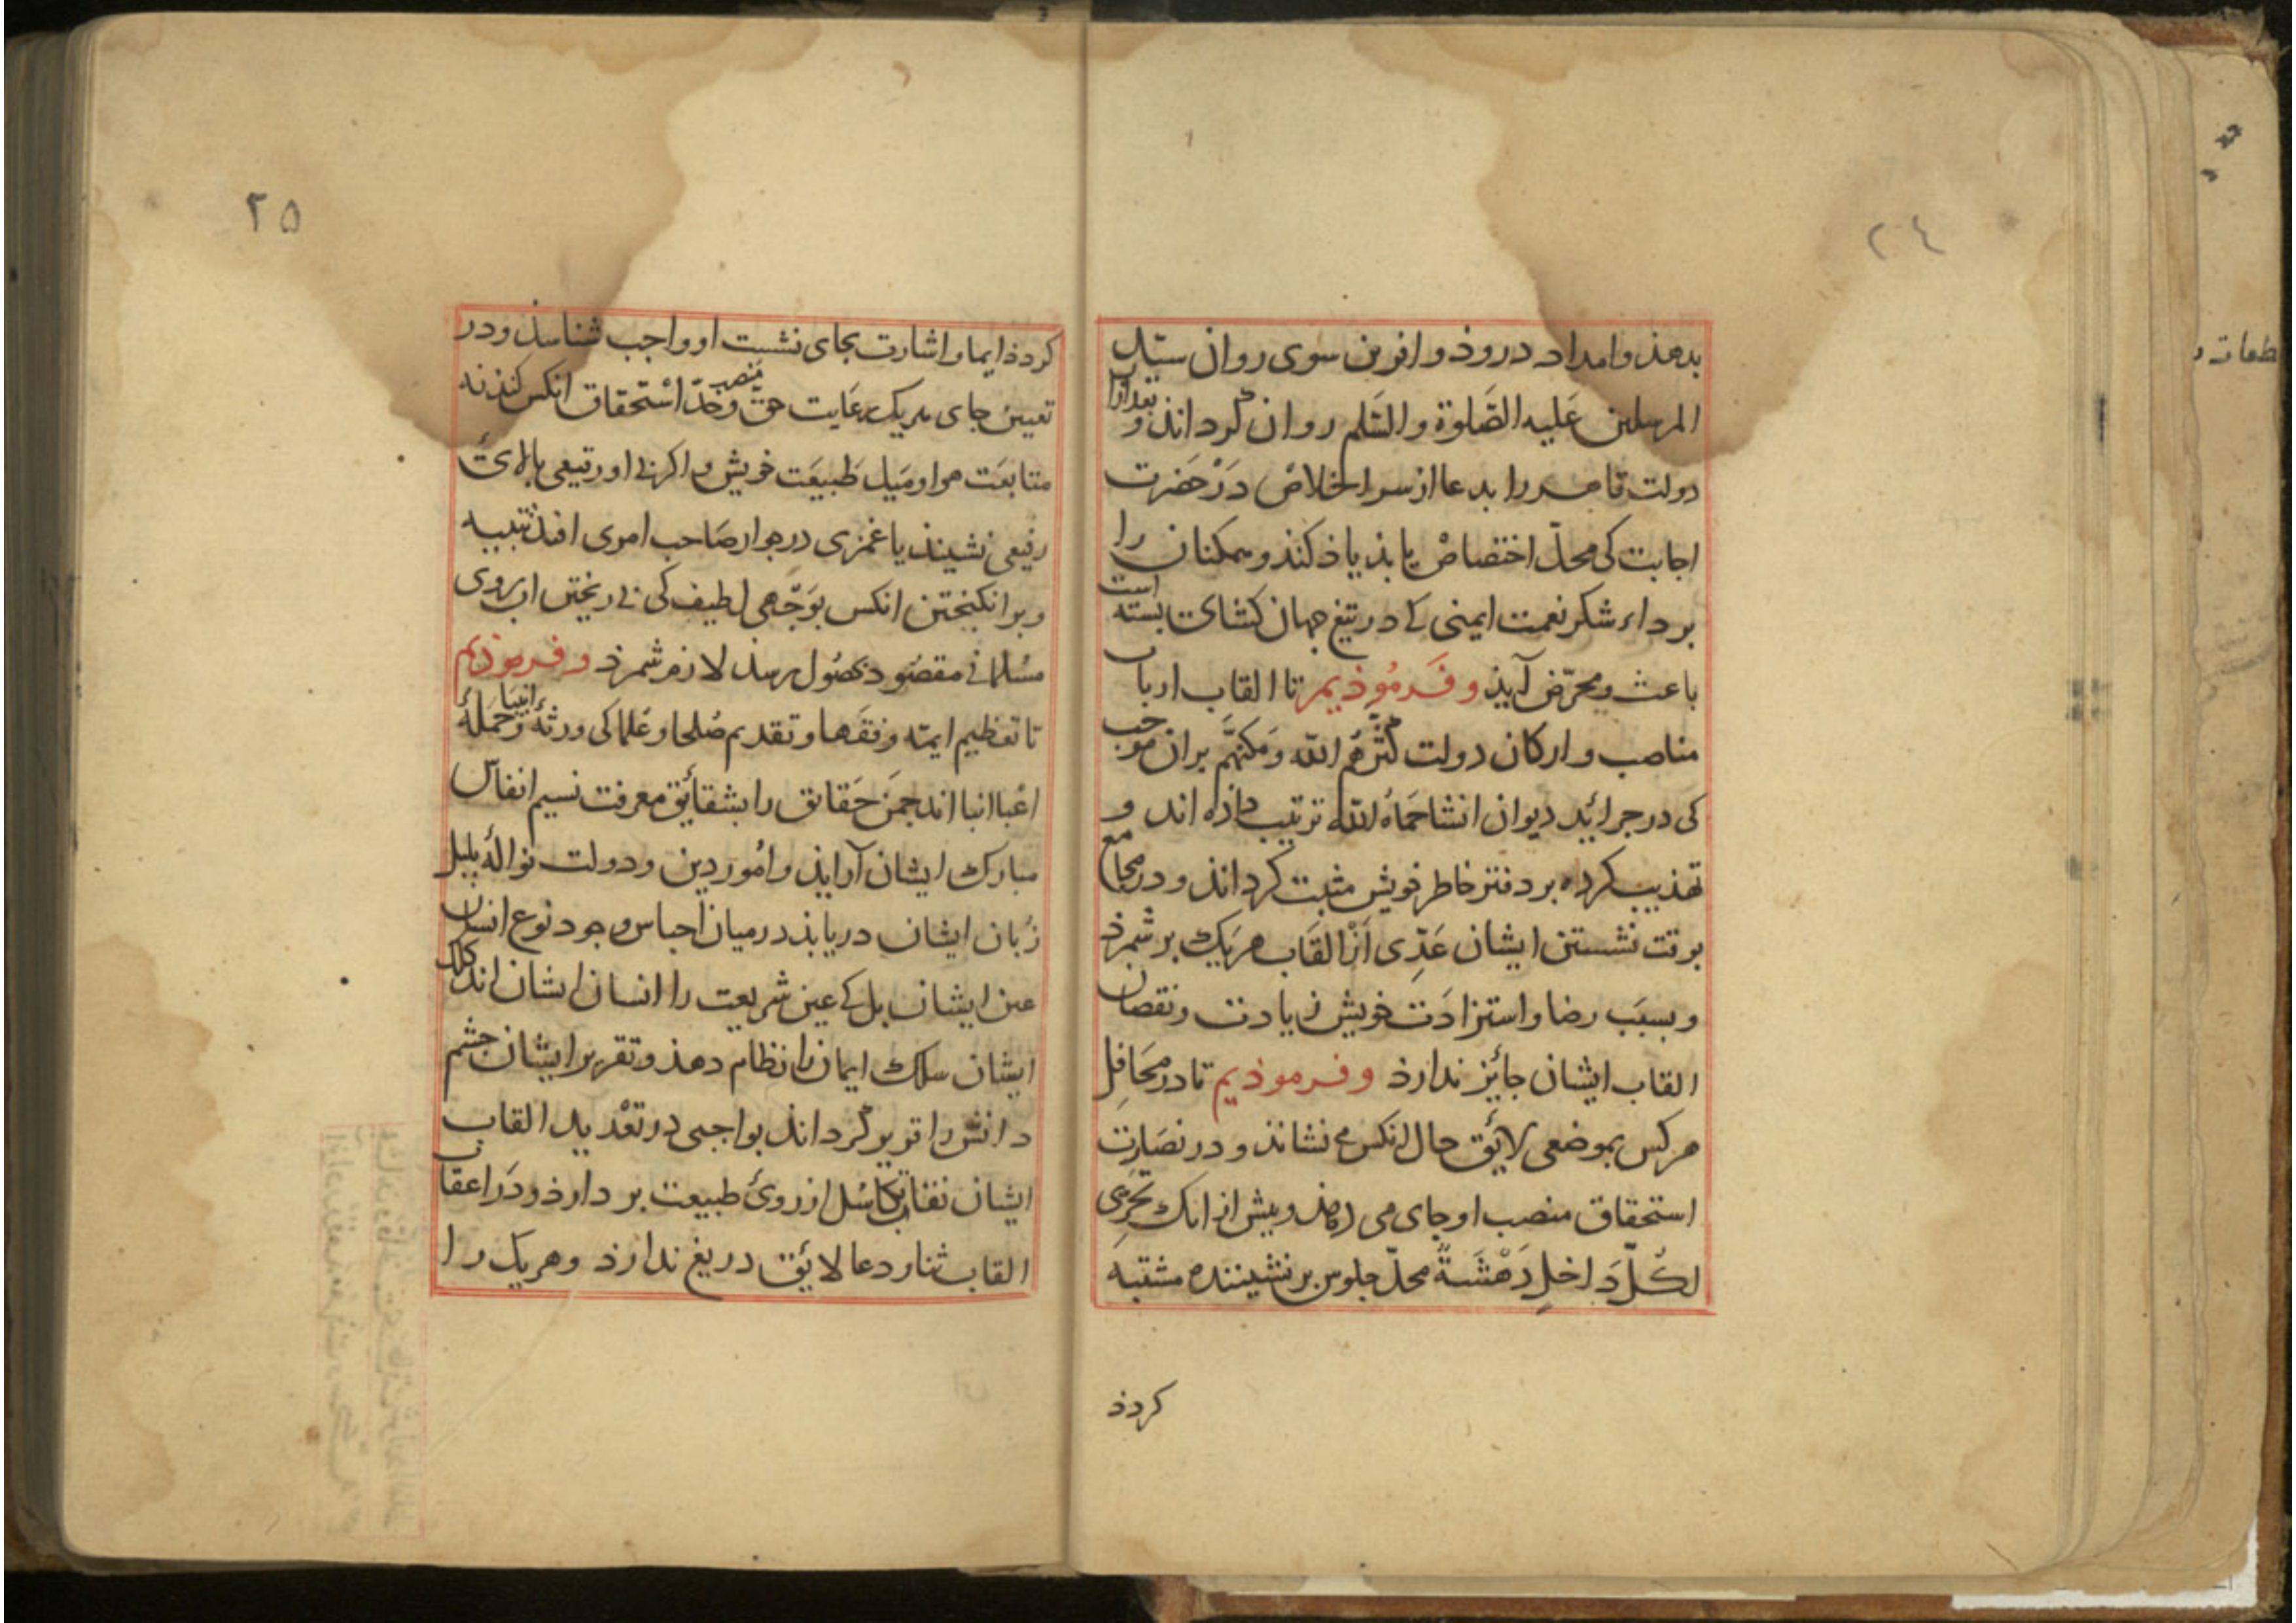 ٢٤
بدهذ و امداد دروذ و افرین سوی روان سیّد
المرسلین عَلیه الصَّلوة والسَّلم روان گرداند و بعد ازان
دولت قاهره را بدعا از سر اخلاصْ دَرْ حَضرت
اجابت کی محلّ اختصاصْ یابذ یاذ کند و ممکنان را
بر داء شکر نعمت ایمنی کی در تیغ جهان کشای بسته است
باعث و محرّض آیذ و فَرمُوذیم تا القاب ارباب
مناصب و ارکان دولت کثرهُم الله وَمکنهُم بران موجب
کی در جرائد دیوان انشا حَمَاهُ الله ترتیب داذه اند و
تهذیب کرده بر دفتر خاطر خویش مثبت کرداند و در مجامع
بوقت نشستن ایشان عَدِّی اَزْ القَاب هریَک بر شمرذ
و بسبَب رضا و استزادَت خویش زیادت و نقصان
القاب ایشان جائز ندارذ و فرموذیم تا در محَافِل
هر کس بموضعی لائق حال انکس می نشاند و در
استحقاق منصب او جای می دهذ و پیش از انک بحُرمی
لکُلّ دَاخلٍ دَهْشَةً محلّ جلوس بر نشیننده مشتبه
کردذ
٢٥
کردذ ایما و اشارت بجای نشست او واجب شناسذ و در
تعیین جای هریک رعَایت حقّ و حَدّ منصب اسْتحقاق انکس کنذ نه
متابعَت هوا و مَیل طَبیعَت خویش و اکر نی او رتیعی بالای
رفیعی نشیند یا غمزی در جوار صَاحب امری افتذ تنبیه
و بر انکیختن انکس بوَجْهی لطیف کی بی ریختن اب روی
مسُلمانی مقصُود بحصُول رسذ لازم شمرذ و فرموذیم
تا تعظیم ایمّه و فقَها و تقدیم صُلحا و عُلما کی ورثهٔ انبیا و حَمَلهٔ
اعْبا انبا اند چمَن حَقایق را بشقائق معرفت نسیم انفاس
مبارک ایشان آرایذ و امُور دین و دولت نوالهٔ بلبل
زبان ایشان دریابذ در میان اجناس وجود نوع انسان
عین ایشان بل کی عین شریعت را انسان ایشان اند کلک
ایشان سلک ایمان را نظام دهذ و تقریر ایشان چشم
دانش را تنویر گرداند بواجبی در تعْدید القاب
ایشان نقاب تکاسُل از روی طبیعت بر دارذ و دَر اعقاب
القاب ثنا و دعا لائق دریغ ندارذ و هریک را